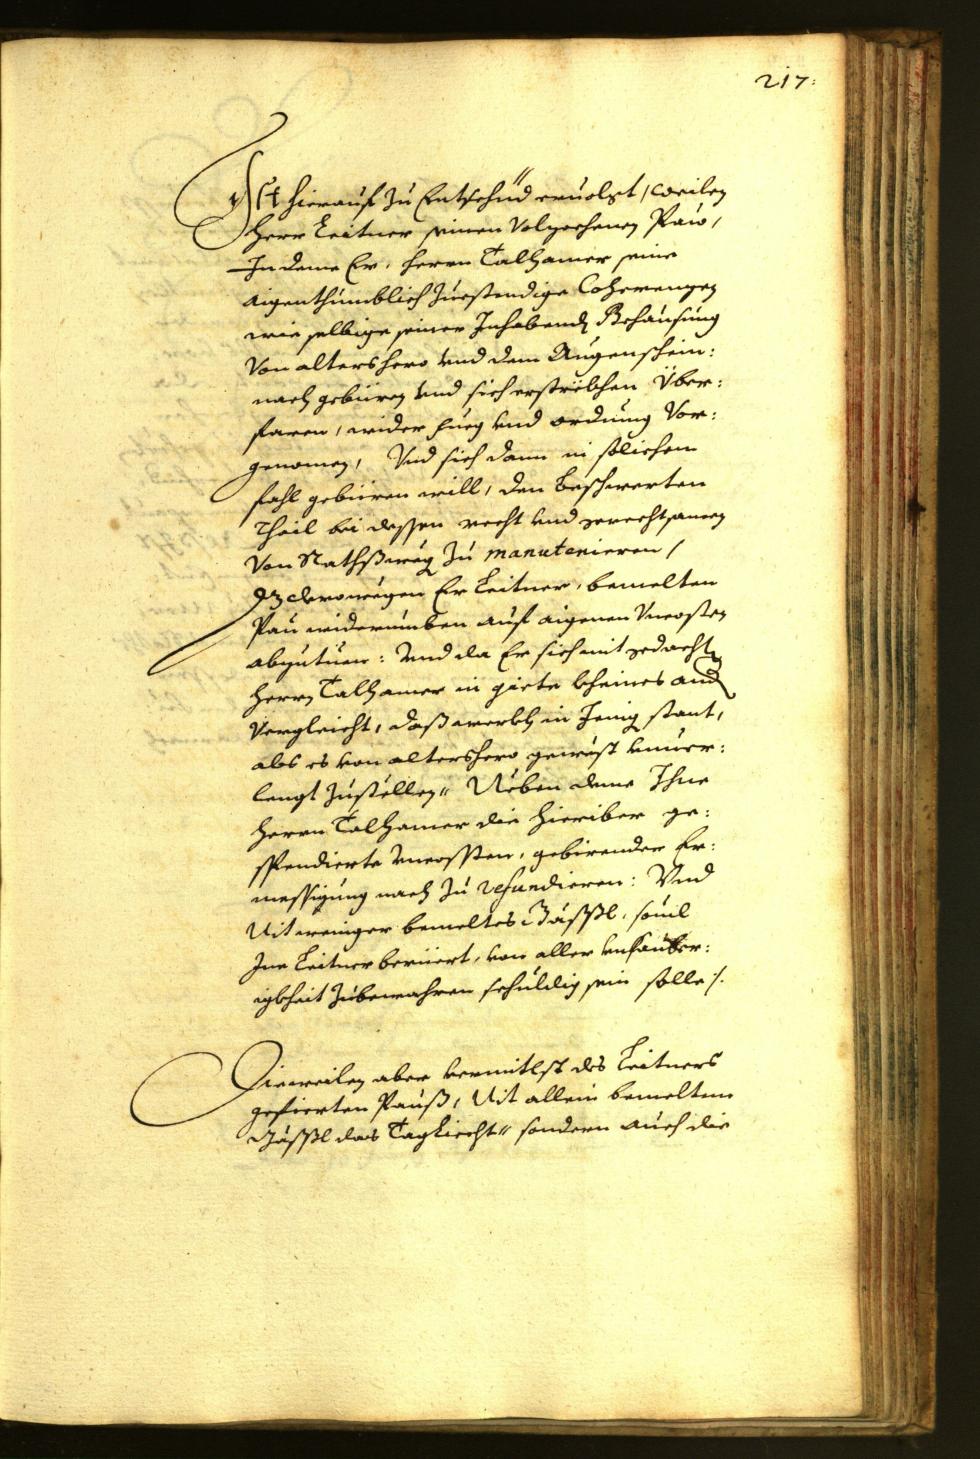 217:
Ist hierauf zu Entschaid ervolgt, weilen
Herr Leitner seinen Volzochenen Paw,
In deme Er, Herrn Talhamer seine
aigenthumblich zuestendige
wie selbige seiner Inhabenden Behausung
Von altershero vnd dem Augenschein:
nach gebüren vnd sich erströkhen Über:
faren, wider fueg vnd ordnung Vor:
genomen, Vnd sich dann in solichem
fahl gebüren will, den beschwerten
Theil bei dessen recht vnd gerechtsamen
Von Rathßweg zu manutenieren,
Dz derowegen Er Leitner, bemelten
Pau widerumben auf aigenen Vncosten
abzutuen: Vnd da Er sich mit gedacht
Herrn Talhamer in giete kheines and
Vergleicht, dasselb in Jenig stant,
als es von altershero gewest vnuer:
lengt zustellen Neben deme Ihne
Herrn Talhamer die hieriber ge:
spendierte vncossten, gebirender Er:
messigung nach zu refundieren: Vnd
Nit weniger bemeltes Gässl, souil
Ine Leitner beriert, von aller vnsauber:
igkheit zubewahren schuldig sein solle /.
Dieweilen aber vermitlst des Leitners
gefierten Pauß, Nit allein bemeltem
Gässl das Tagliecht sondern auch die